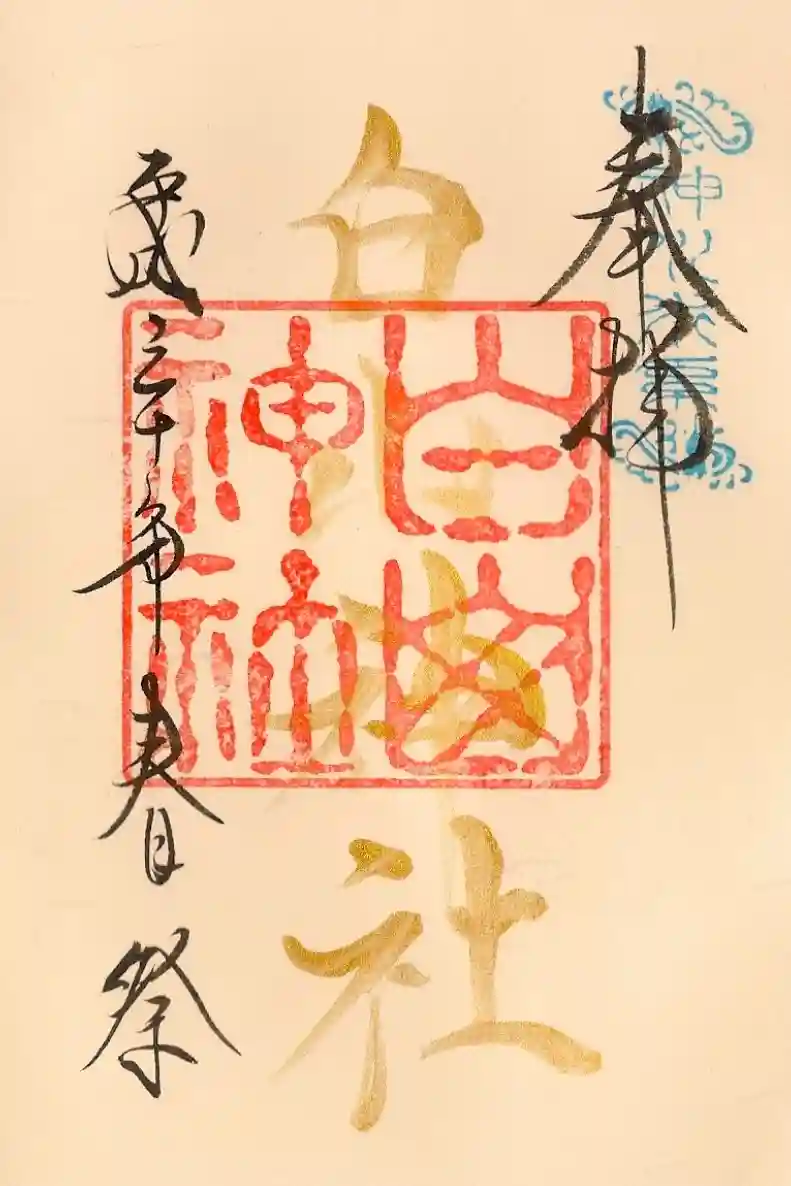 奉拝
白山神社
白山神社
平成三十年春祭